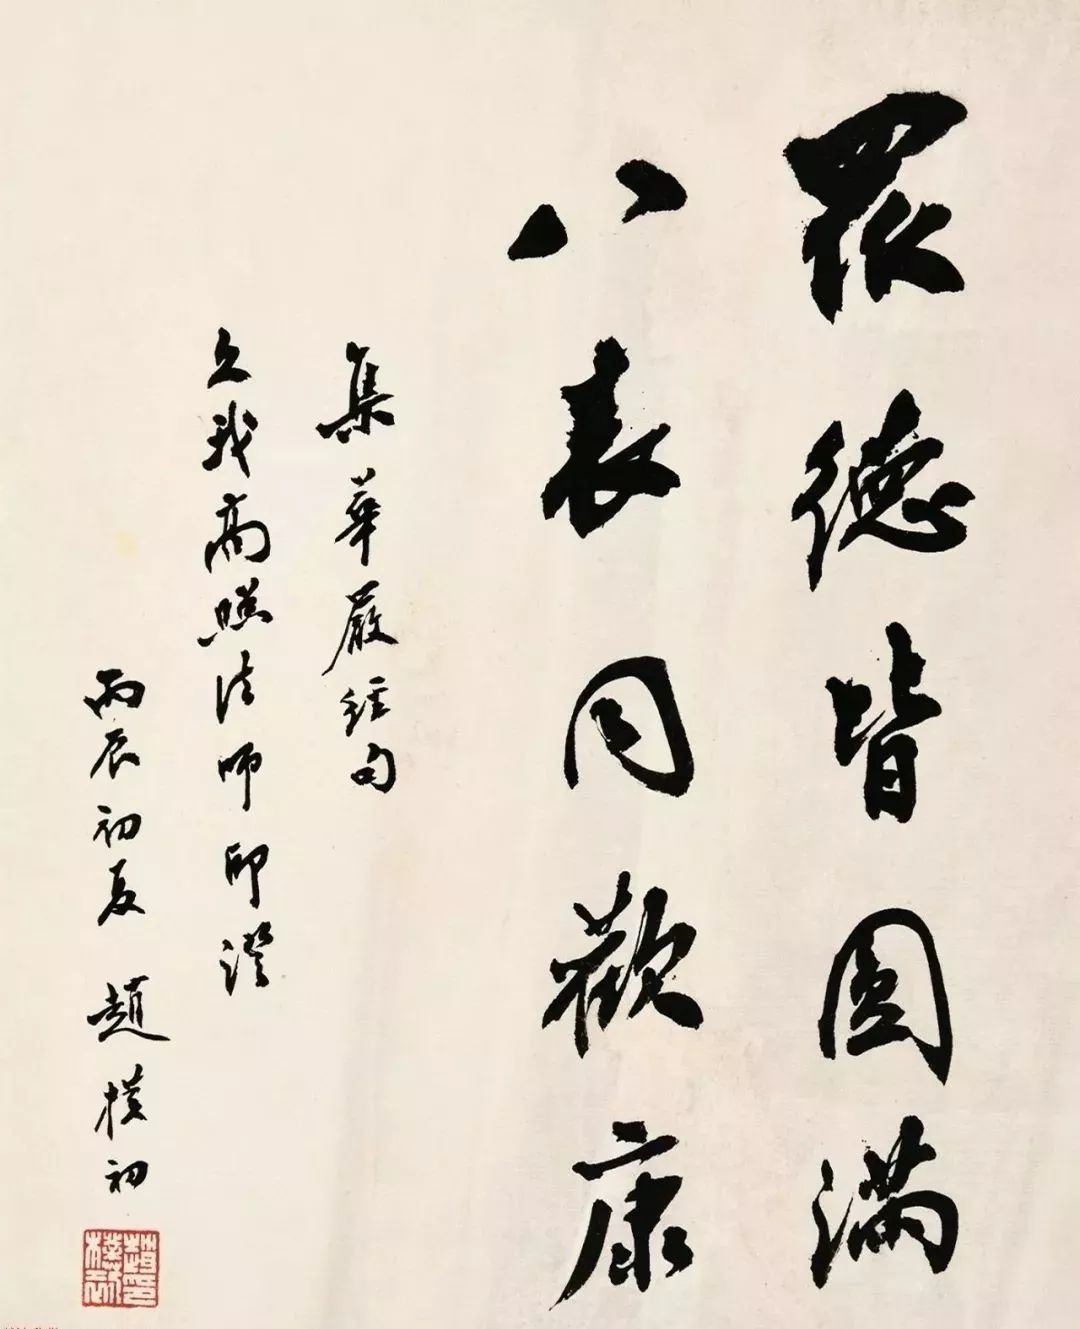 眾德皆圓滿
八表同歡康
集華嚴經句
高照法師印證
丙辰初夏 趙樸初
趙樸初印